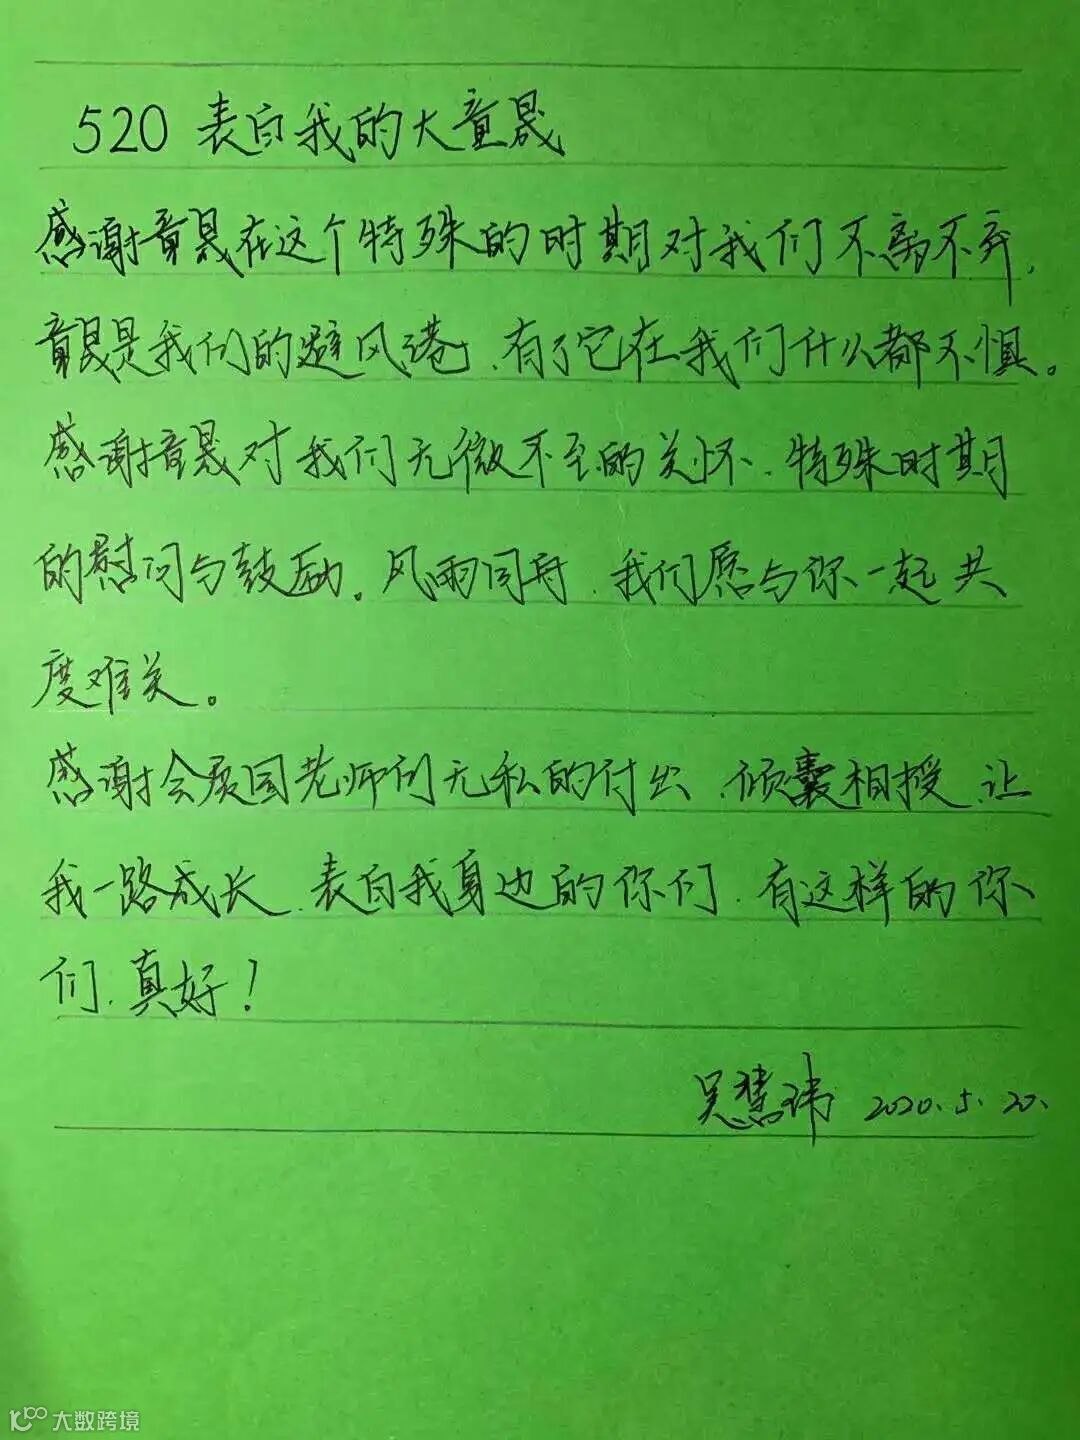 520 表白我的大童晟
感谢童晟在这个特殊的时期对我们不离不弃,
童晟是我们的避风港、有了它在我们什么都不惧。
感谢童晟对我们无微不至的关怀、特殊时期
的慰问与鼓励。风雨同舟、我们愿与你一起共
度难关。
感谢会展园老师们无私的付出、倾囊相授、让
我一路成长、表白我身边的你们、有这样的你
们、真好!
吴慧玮 2020.5.20.
大数跨境